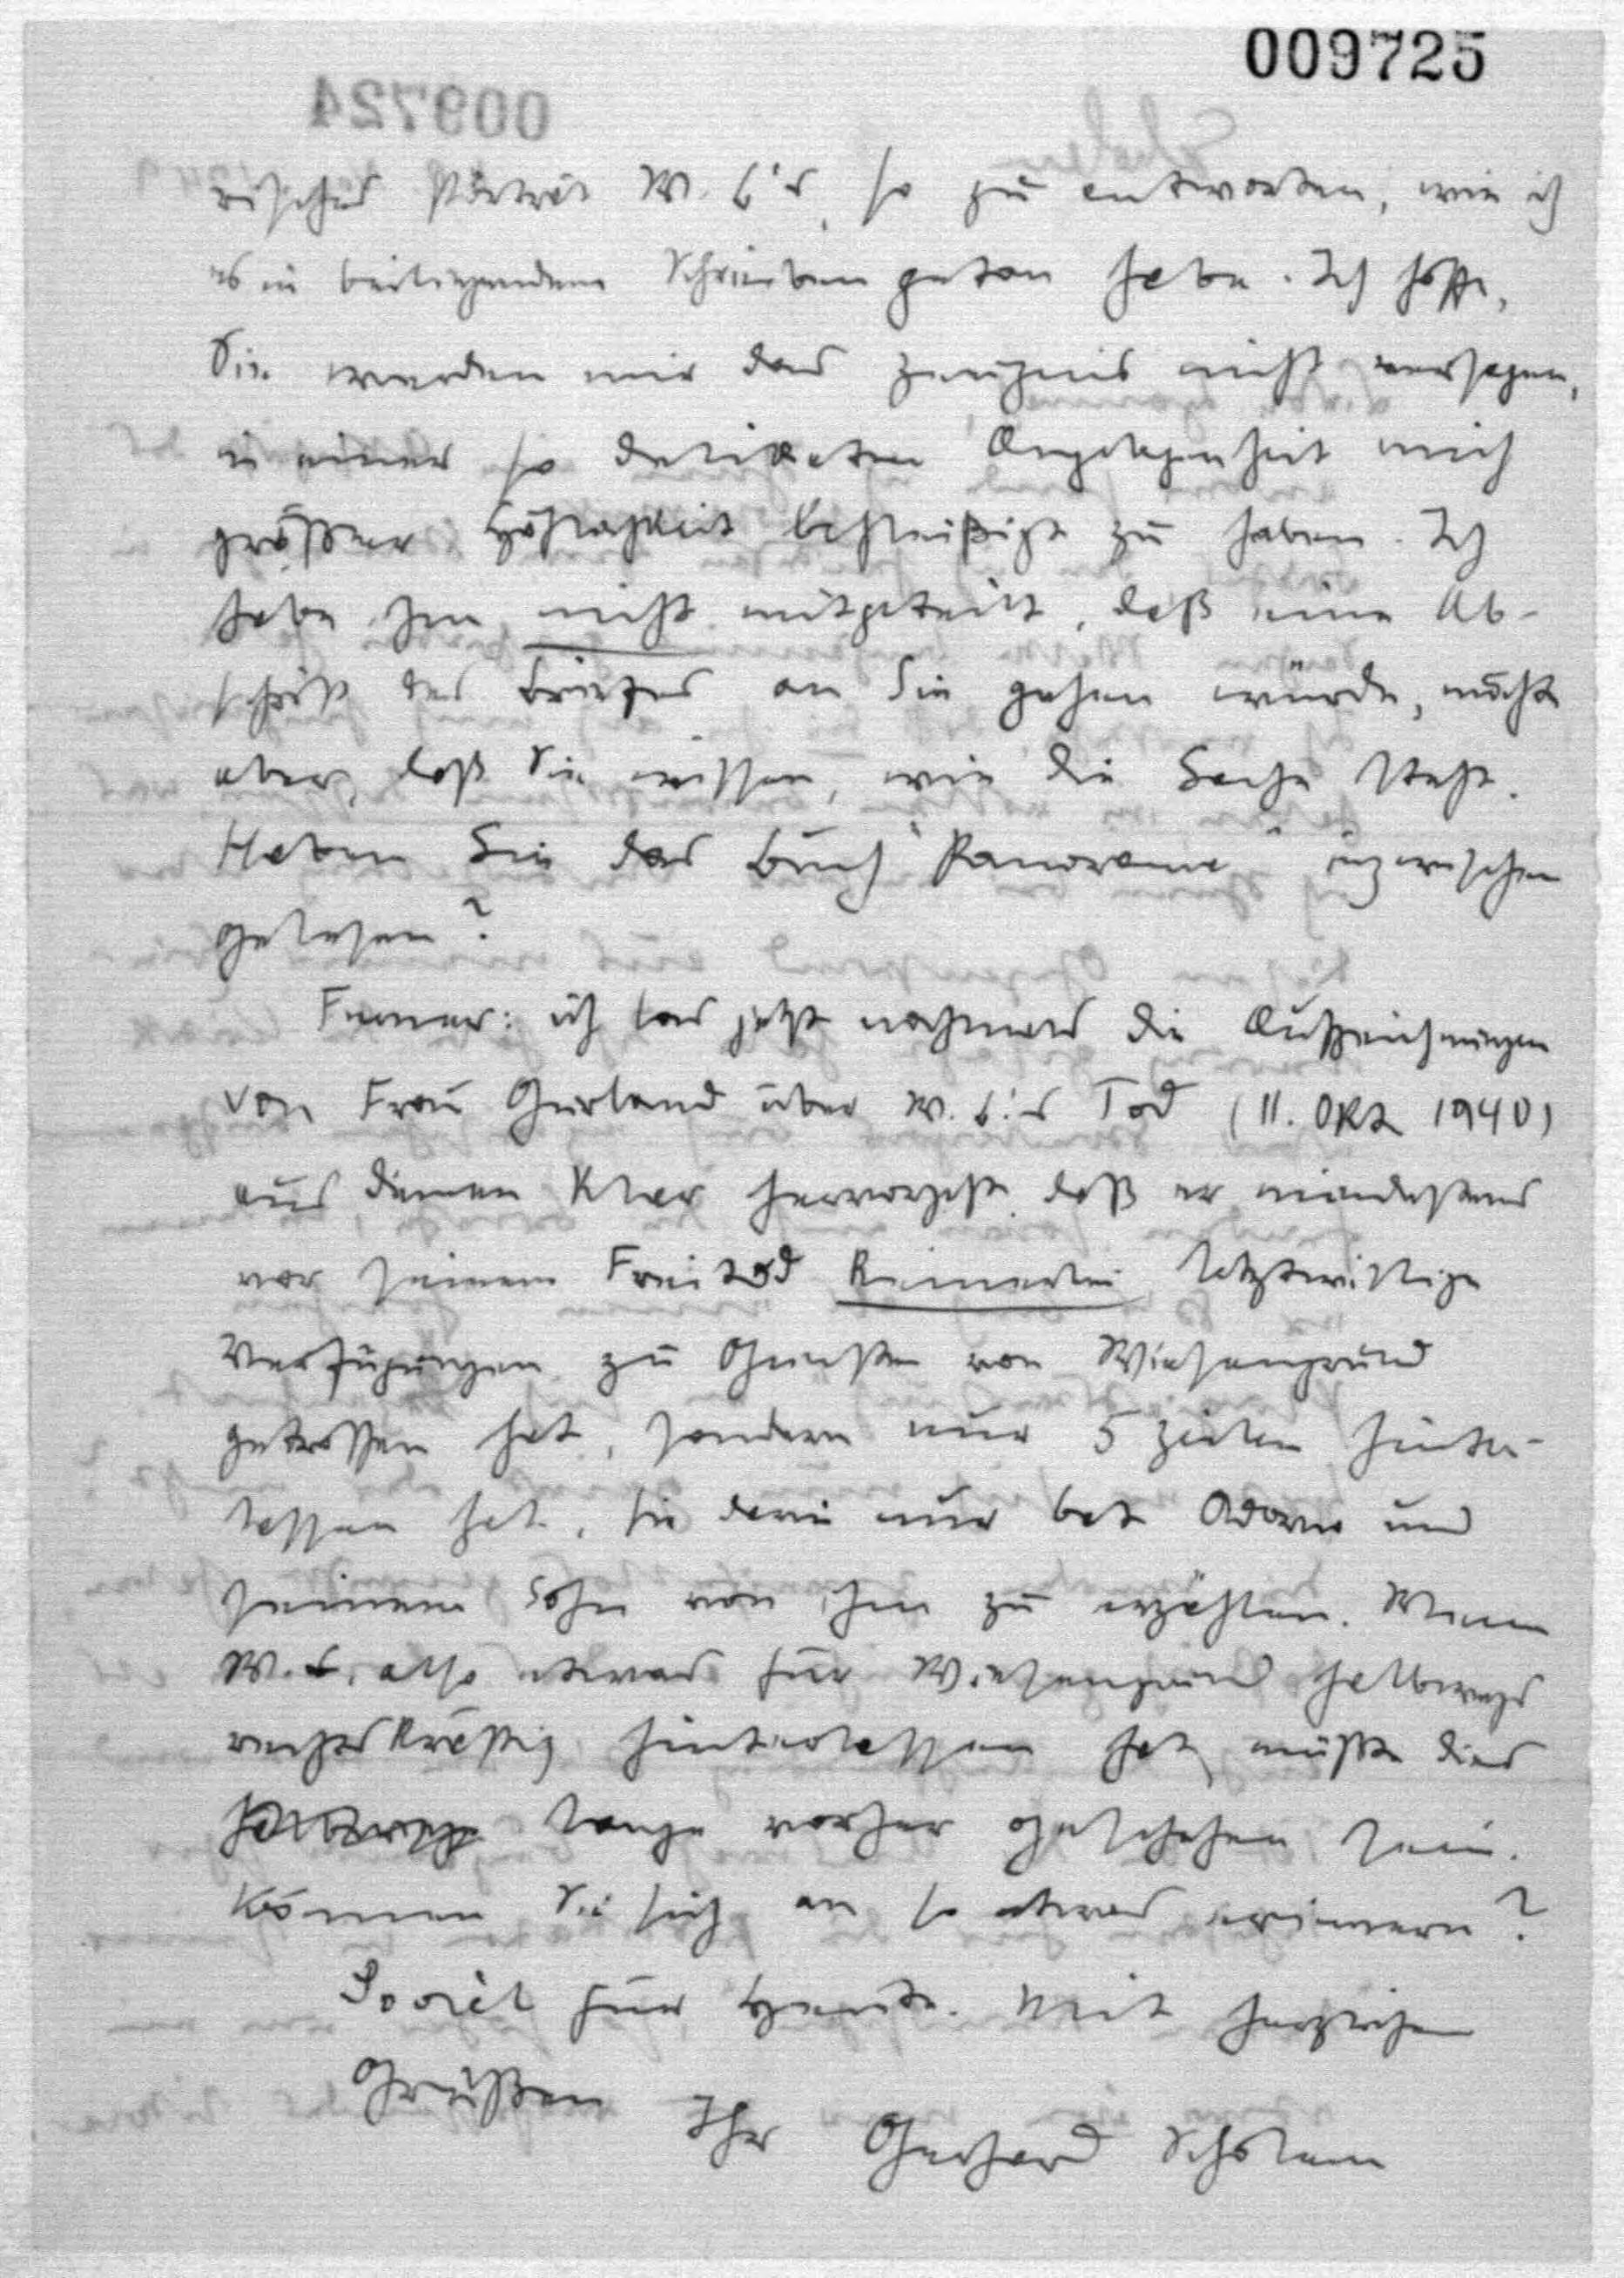 009725
009724
risches Porträt W. B.'s, so zu antworten, wie ich
es in beiliegendem Schreiben getan habe. Ich hoffe,
Sie werden mir das Zeugnis nicht versagen,
in einer so delikaten Angelegenheit mich
größter Höflichkeit befleißigt zu haben. Ich
habe ihm nicht mitgeteilt, daß eine Ab-
schrift des Briefes an Sie gehen würde, möchte
aber, daß Sie wissen, wie die Sache steht.
Haben Sie das Buch "Panorama" inzwischen
gelesen?
Ferner: ich las jetzt nochmals die Aufzeichnungen
von Frau Gurland über W. B.'s Tod (11. Okt 1940)
aus denen klar hervorgeht, daß er mindestens
vor seinem Freitod keinerlei letztwillige
Verfügungen zu Gunsten von Wiesengrund
getroffen hat, sondern nur 5 Zeilen hinter-
lassen hat, die darin nur bat Adorno und
seinem Sohn von ihm zu erzählen. Wenn
W. B. also etwas für Wiesengrund halbwegs
rechtskräftig hinterlassen hat, müßte dies
lange vorher geschehen sein.
Können Sie sich an so etwas erinnern?
Soviel für heute. Mit herzlichen
Grüßen
Ihr Gerhard Scholem